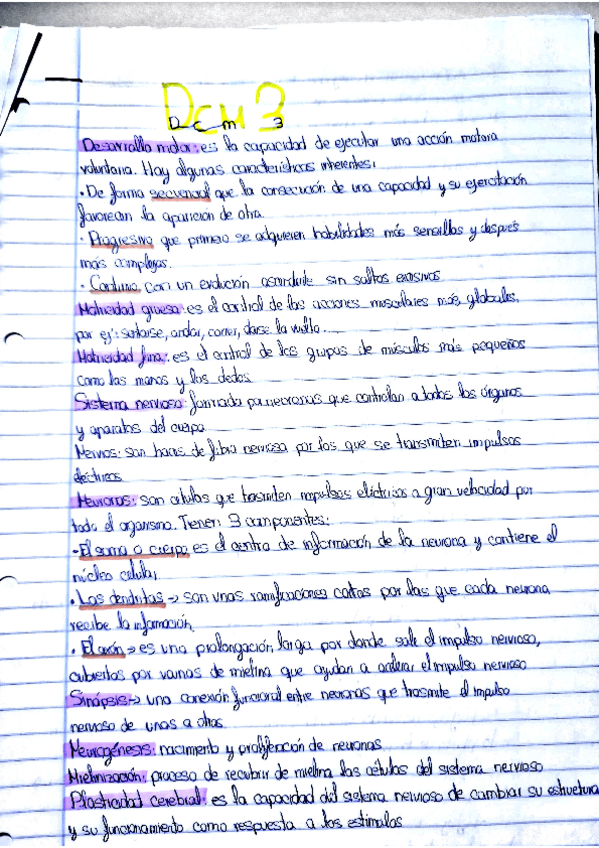 Dcm 3
D c m 3
Desarrollo motor: es la capacidad de ejecutar una acción motora
voluntaria. Hay algunas características inherentes:
• De forma secuencial que la consecución de una capacidad y su ejercitación
favorecen la aparición de otra.
· Progresiva que primero se adquieren habilidades más sencillas y después
más complejas.
· Continua con un evolución ascendente sin saltos excesivos
Motricidad gruesa: es el control de las acciones musculares más globales,
por ej: sentarse, andar, correr, darse la vuelta...
Motricidad fina: es el control de los grupos de músculos más pequeños
como las manos y los dedos
Sistema nervioso: formado por neuronas que controlan a todos los órganos
y aparatos del cuerpo
Nervios: son haces de fibra nerviosa por los que se transmiten impulsos
eléctricos
Neuronas: son células que trasmiten impulsos eléctricos a gran velocidad por
todo el organismo. Tienen 3 componentes:
- El soma o cuerpo es el centro de información de la neurona y contiene el
núcleo celular
• Las dendritas → son unas ramificaciones cortas por las que cada neurona
recibe la información.
• El axón → es una prolongación larga por donde sale el impulso nervioso,
cubiertos por vainas de mielina que ayudan a acelerar el impulso nervioso
Sinápsis → una conexión funcional entre neuronas que trasmite el impulso
nervioso de unas a otras
Neurogénesis: nacimiento y proliferación de neuronas
Mielinización: proceso de recubrir de mielina las células del sistema nervioso
Plasticidad cerebral: es la capacidad del sistema nervioso de cambiar su estructura
y su funcionamiento como respuesta a los estímulos